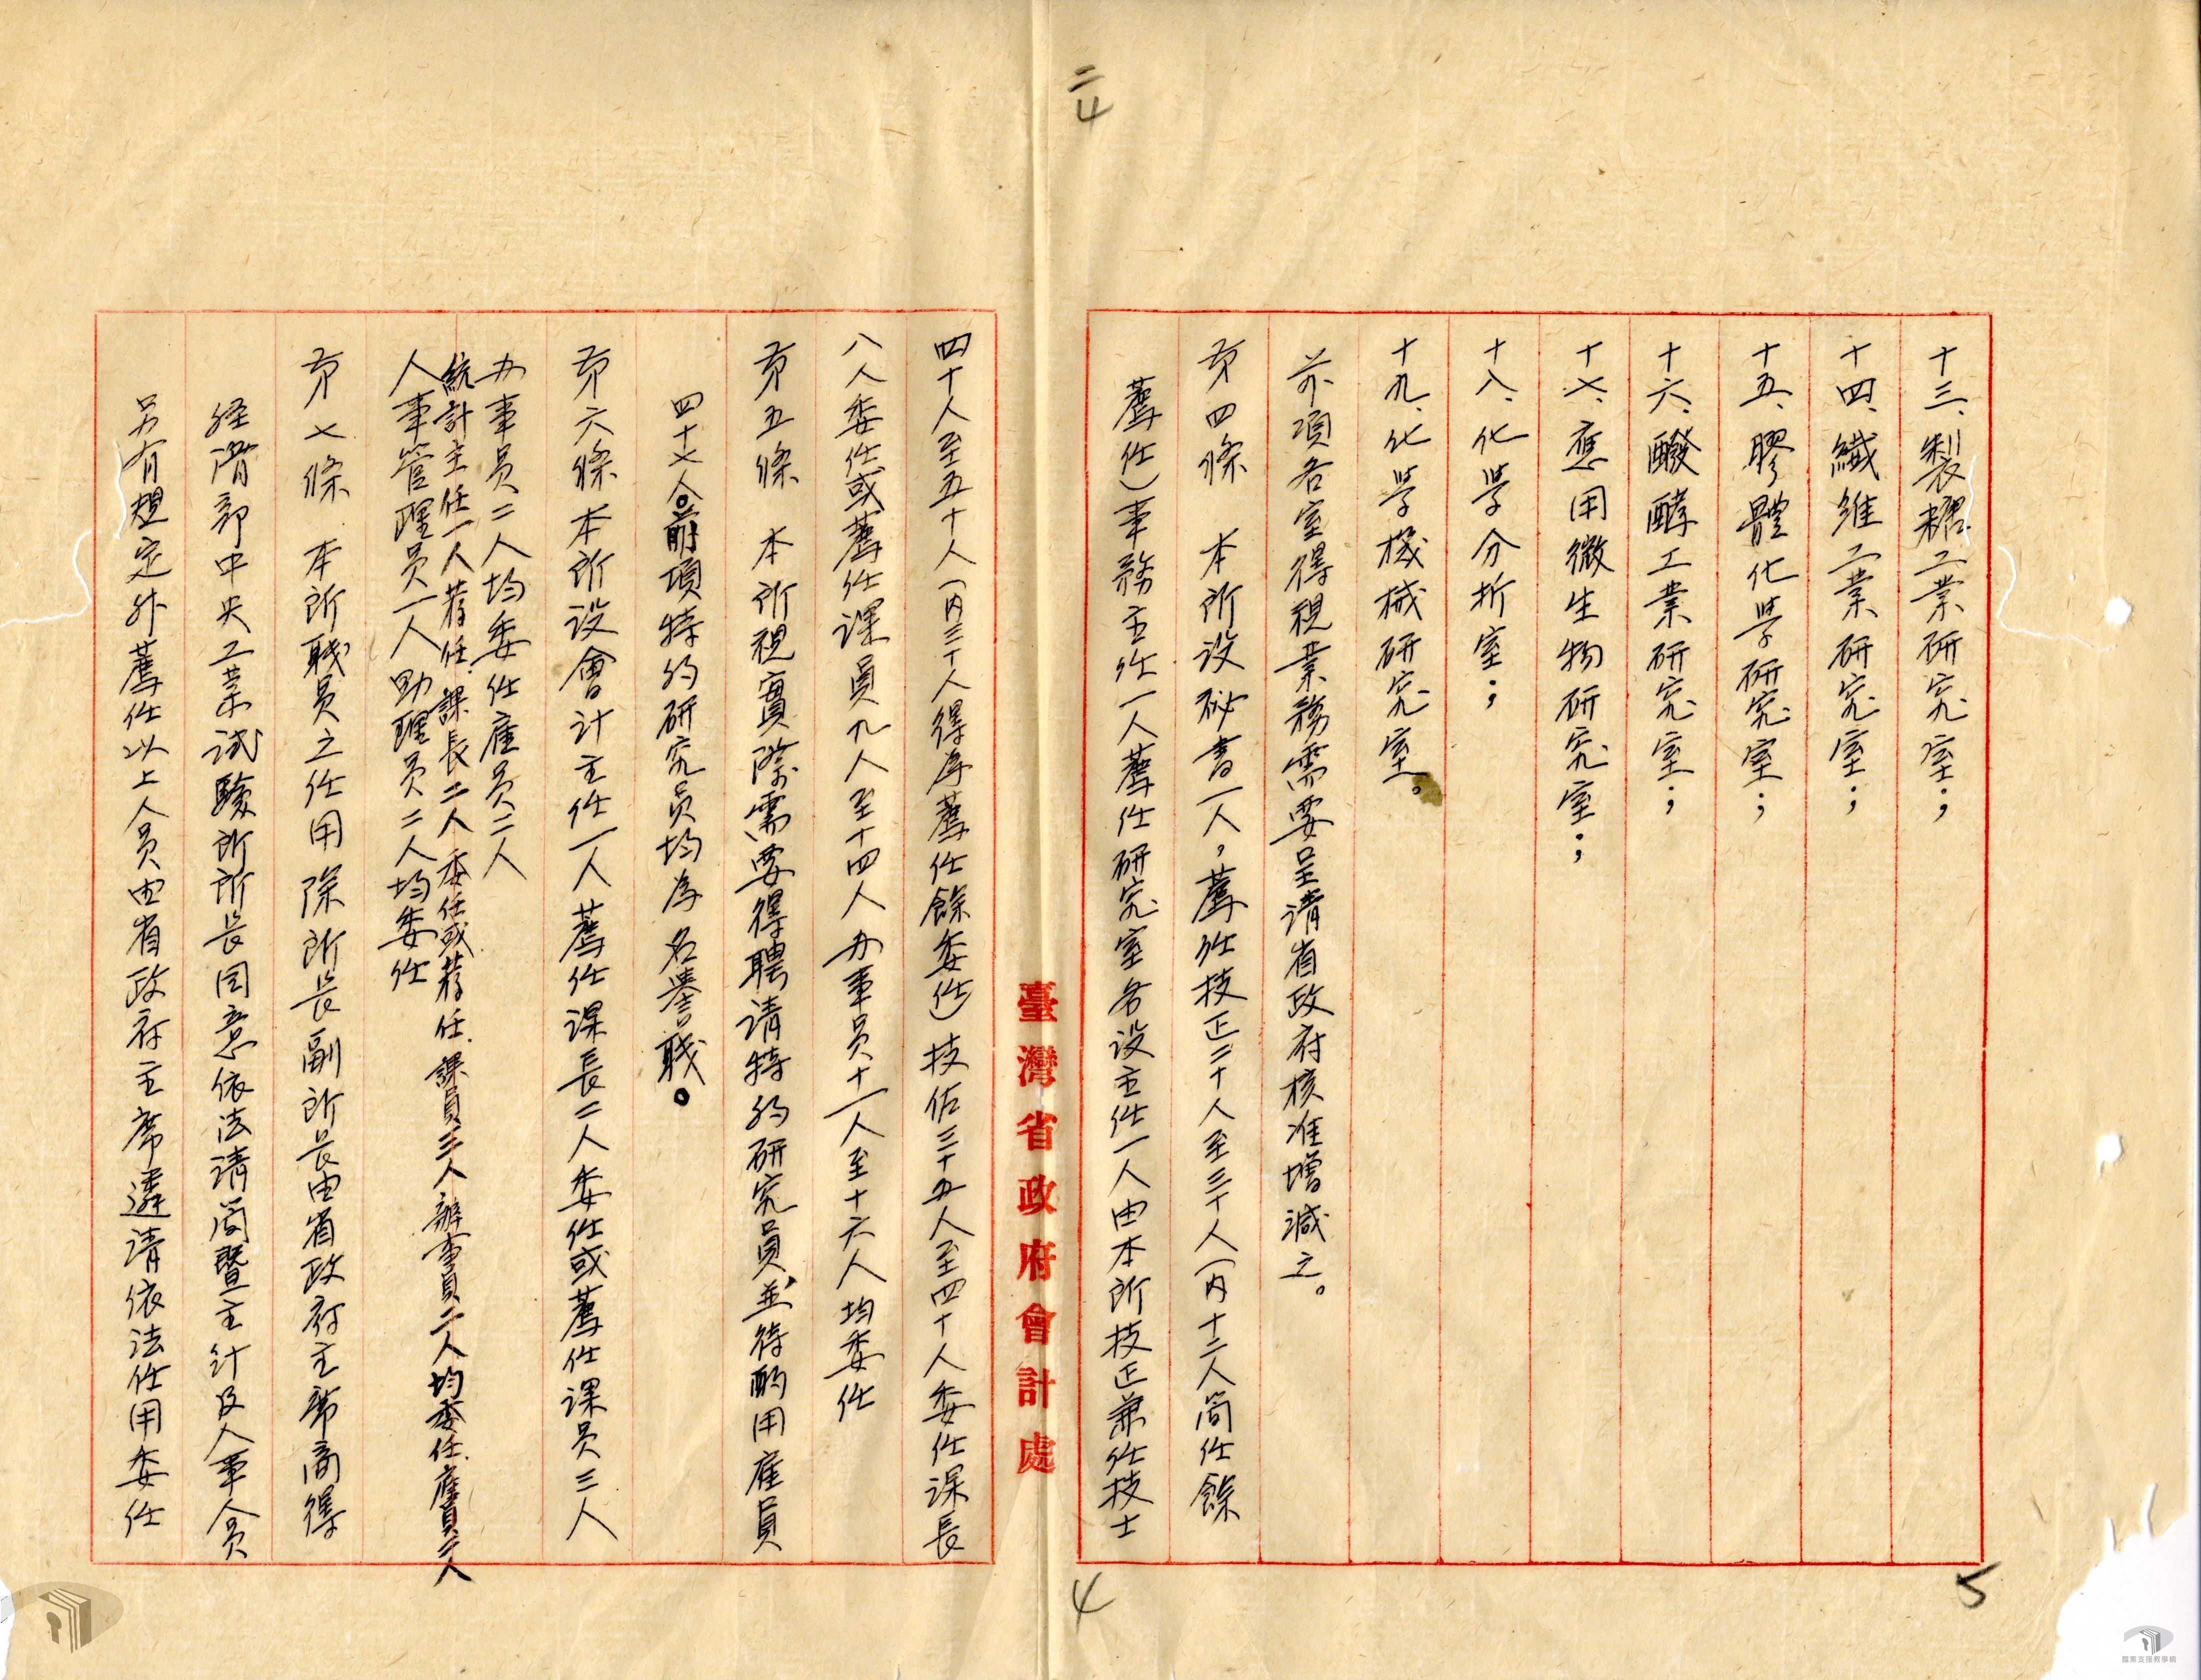 二
4
十三、製糖工業研究室；
十四、纖維工業研究室；
十五、膠體化學研究室；
十六、醱酵工業研究室；
十七、應用微生物研究室；
十八、化學分析室；
十九、化學機械研究室。
前項各室得視業務需要呈請省政府核准增減之。
第四條　本所设祕書一人，薦任技正二十人至三十人（內十二人简任餘
薦任）事務主任一人薦任研究室各设主任一人由本所技正兼任技士
臺灣省政府會計處
四十人至五十人（內三十人得為薦任餘委任）技佐三十五人至四十人委任课長
八人委任或薦任课員九人至十四人办事员十一人至十六人均委任
第五條　本所視實際需要得聘请特约研究員並得酌用雇員
四十七人。前項特约研究员均為名譽職。
第六條本所设會计主任一人薦任课長二人委任或薦任课员三人
办事员二人均委任雇员二人
統計主任一人荐任、課長二人委任或荐任、課員三人辦事員二人均委任、雇員二人
人事管理员一人助理员二人均委任
第七條　本所職员之任用除所长副所长由省政府主席商得
经濟部中央工業试驗所所长同意依法请简暨主计及人事人员
另有規定外薦任以上人员由省政府主席遴请依法任用委任
4
5
檔案支援教學網